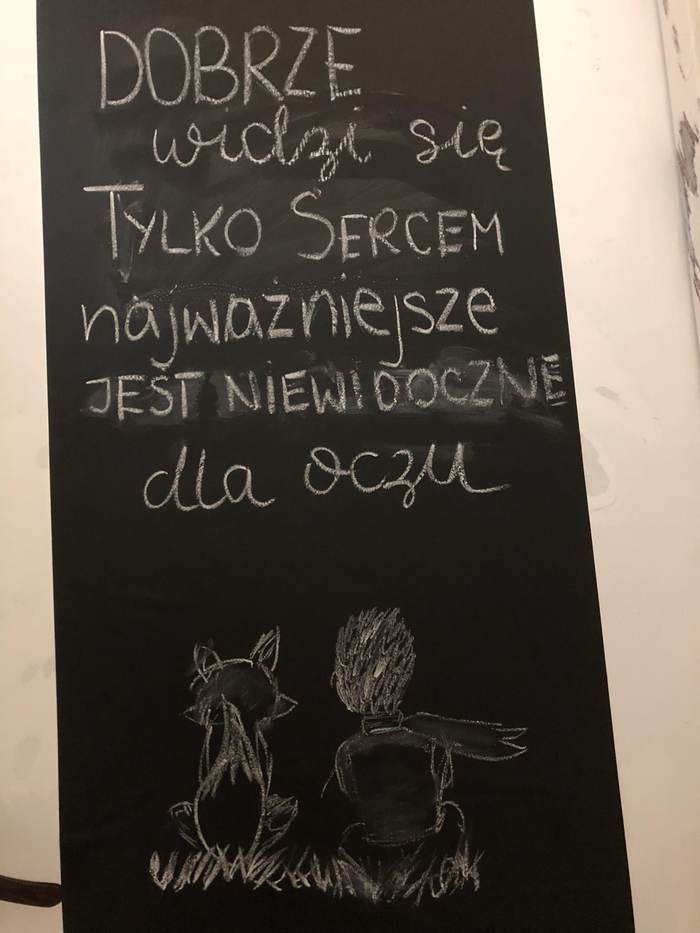 DOBRZE
widzi się
TYLKO SERCEM
najważniejsze
JEST NIEWIDOCZNE
dla oczu